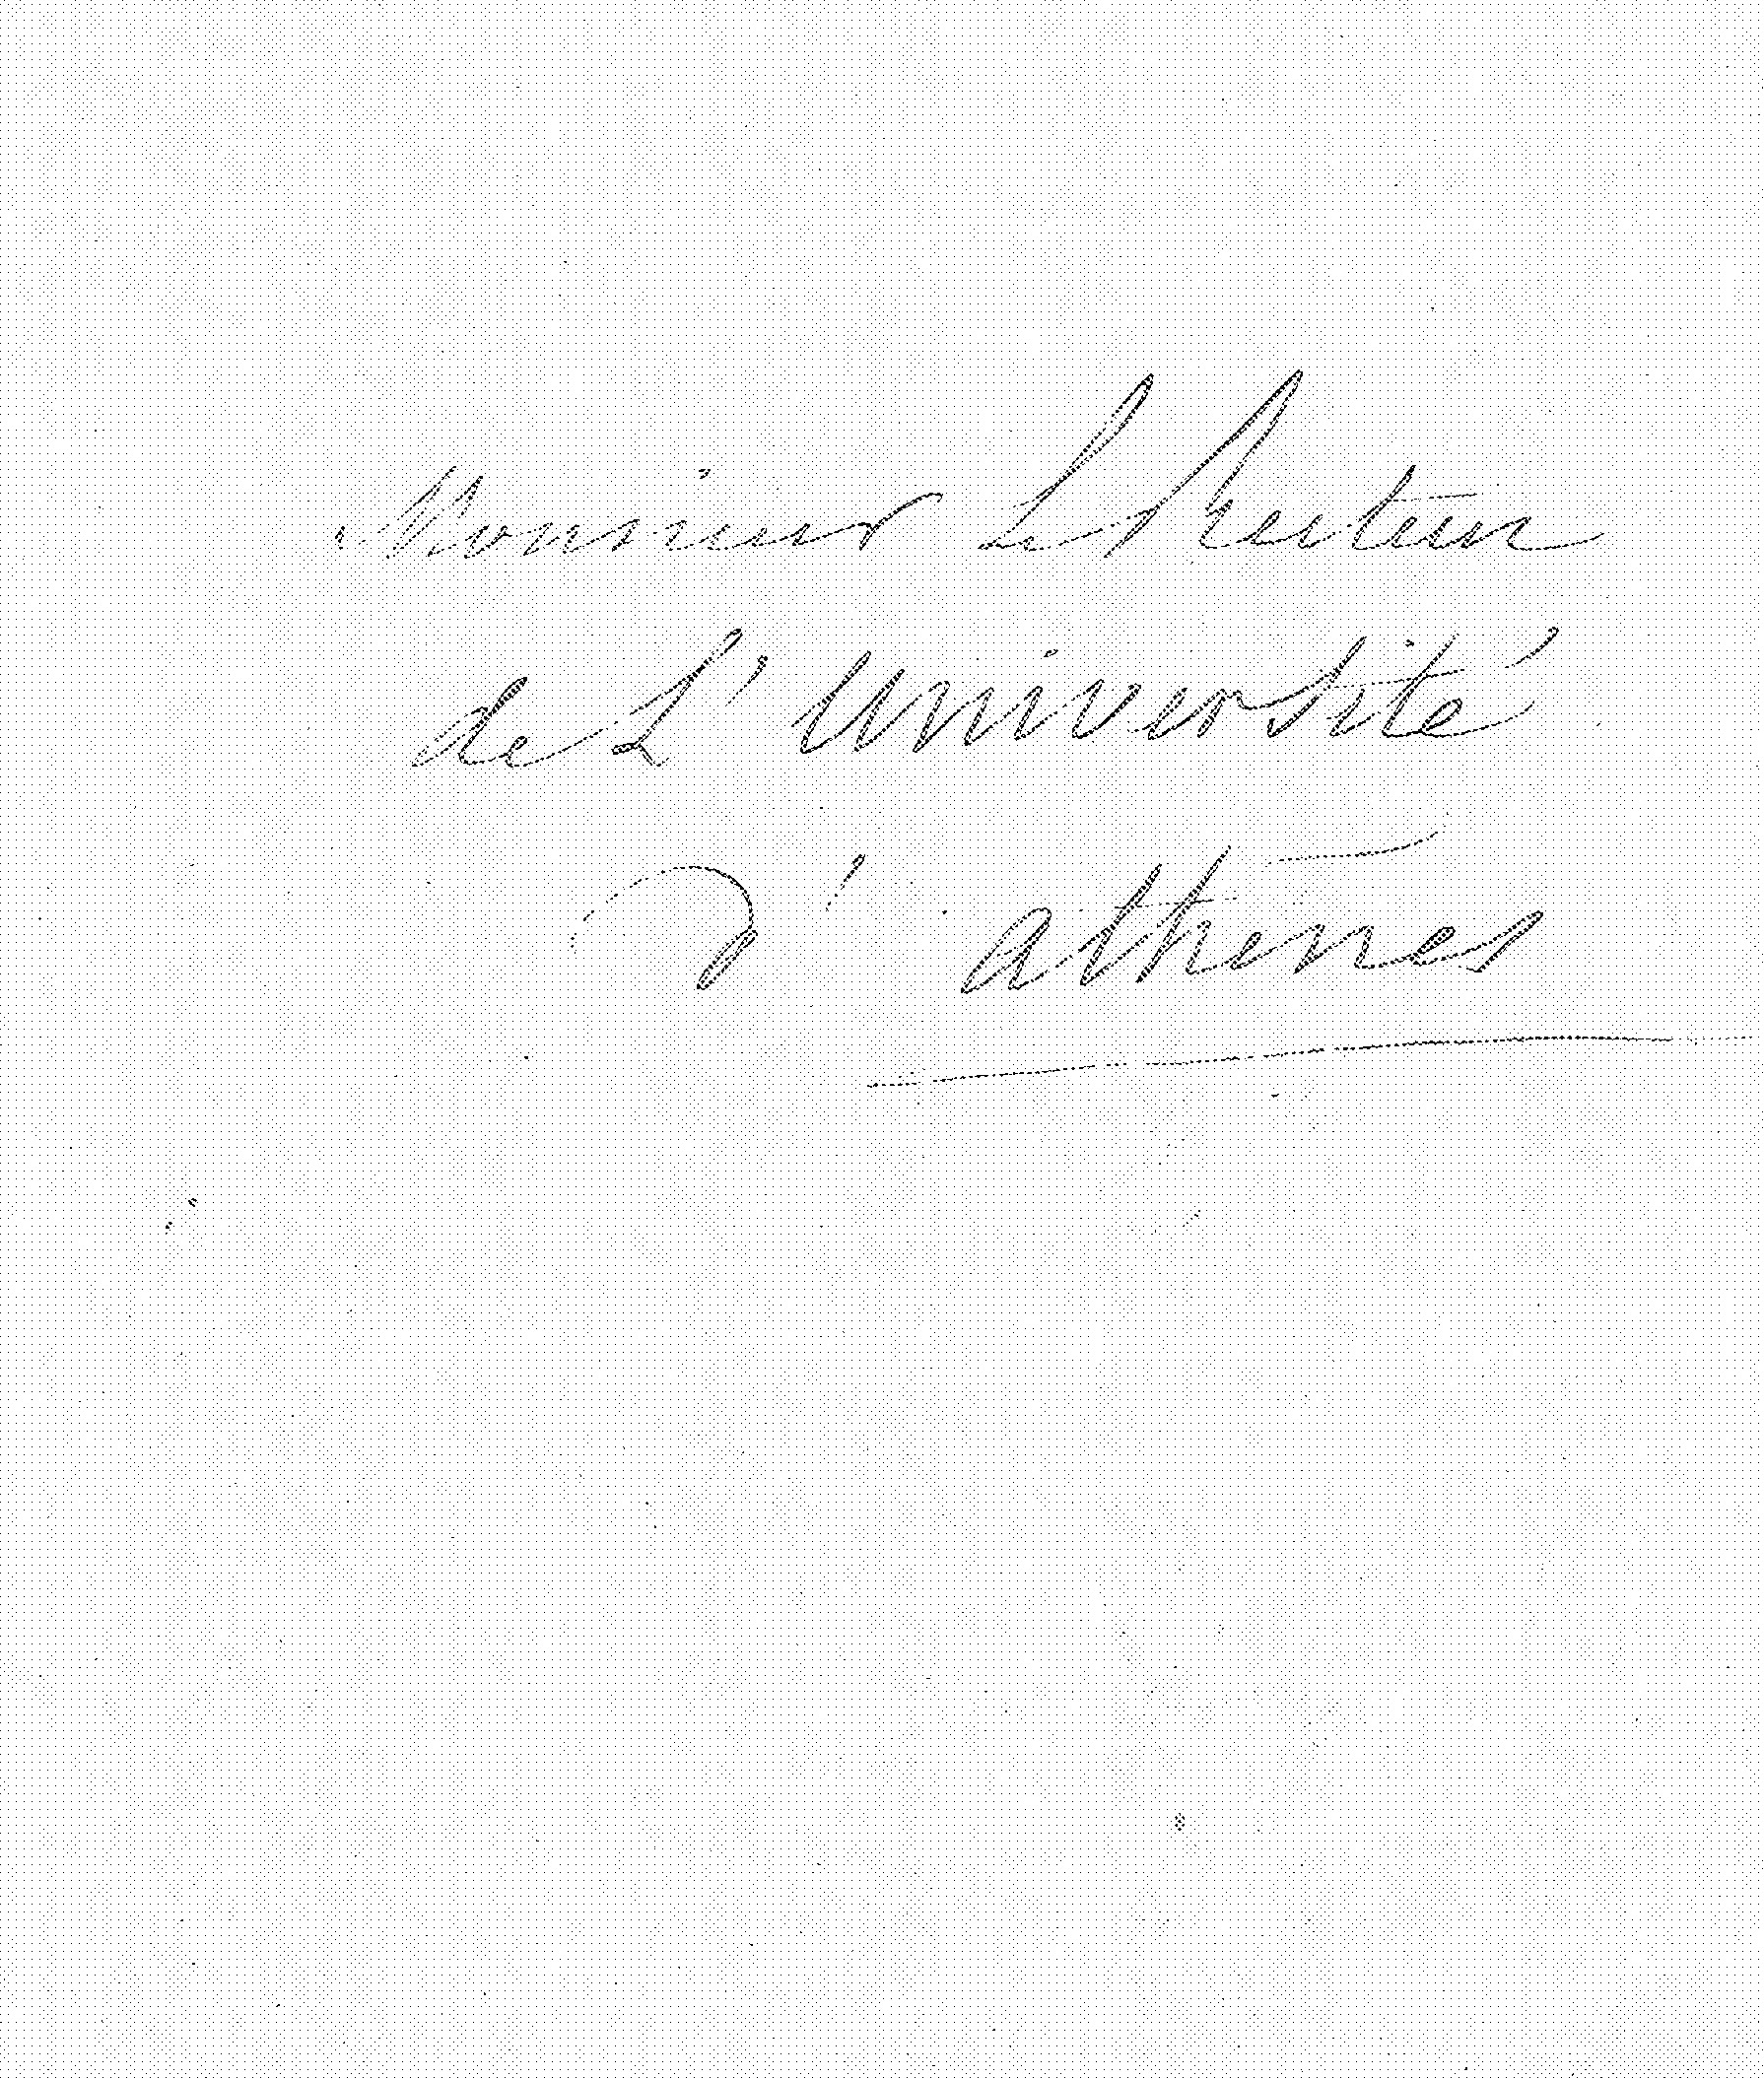 Monsieur Le Recteur
de L'Université
D'athènes